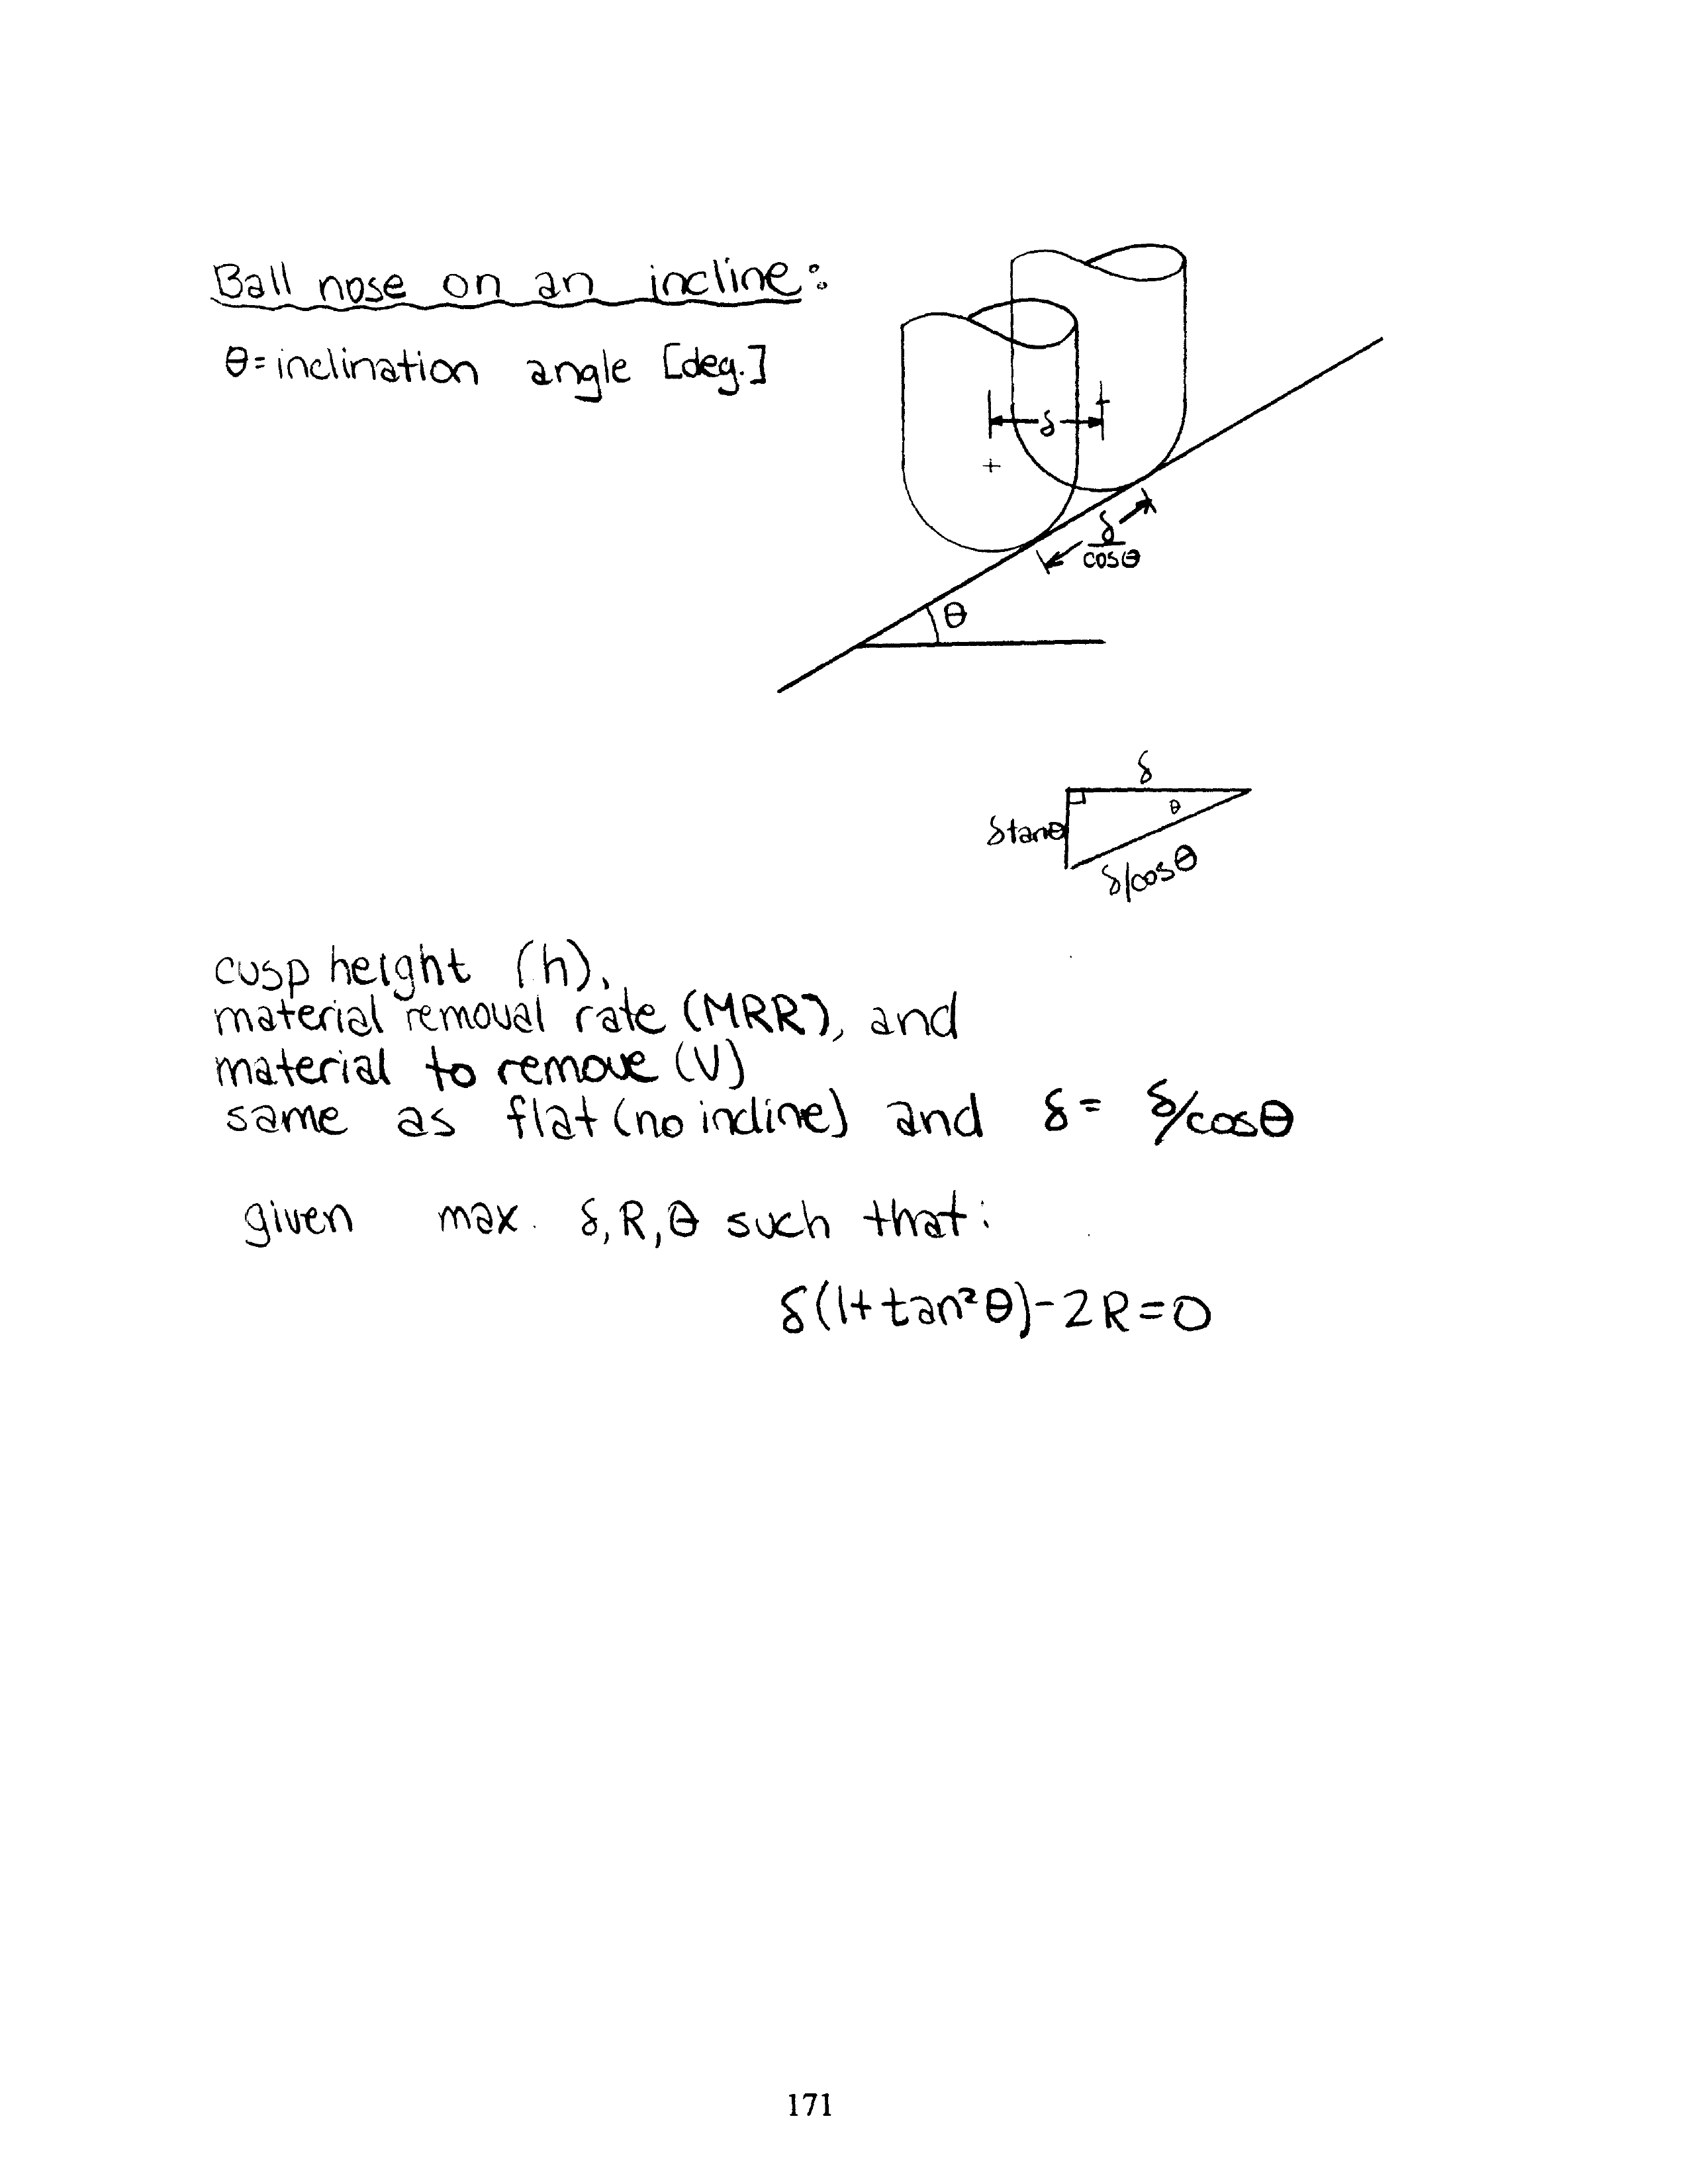 Ball nose on an incline:
θ = inclination angle [deg.]
δ
δ/cosθ
θ
δ
θ
δtanθ
δ/cosθ
cusp height (h),
material removal rate (MRR), and
material to remove (V)
same as flat (no incline) and δ = δ/cosθ
given max. δ, R, θ such that:
δ(1+tan²θ)-2R=0
171